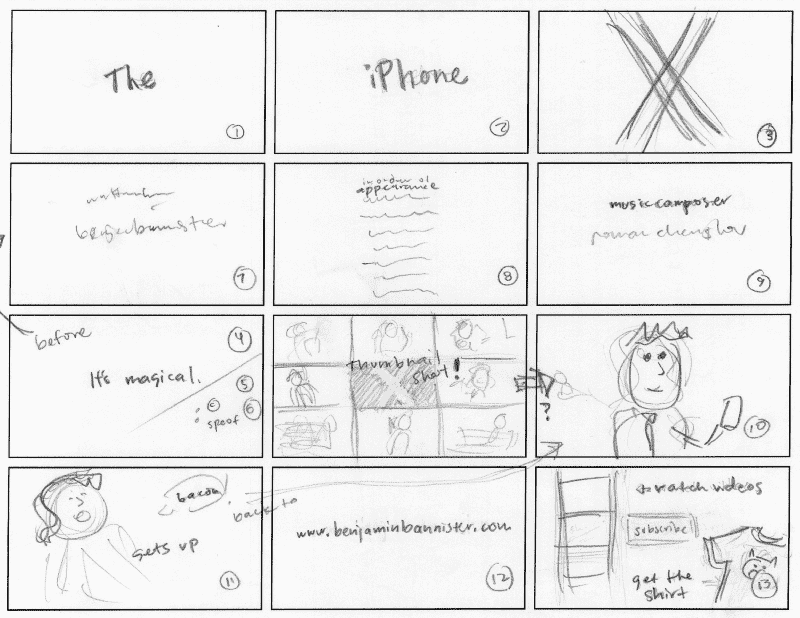 The
1
iPhone
2
X
3
7
in order of
appearance
8
music composer
9
before
4
It's magical.
5
6
spoof
Thumbnail
Shot!
?
10
bacon
back to
gets up
11
www.benjaminbannister.com
12
watch videos
subscribe
get the
shirt
13